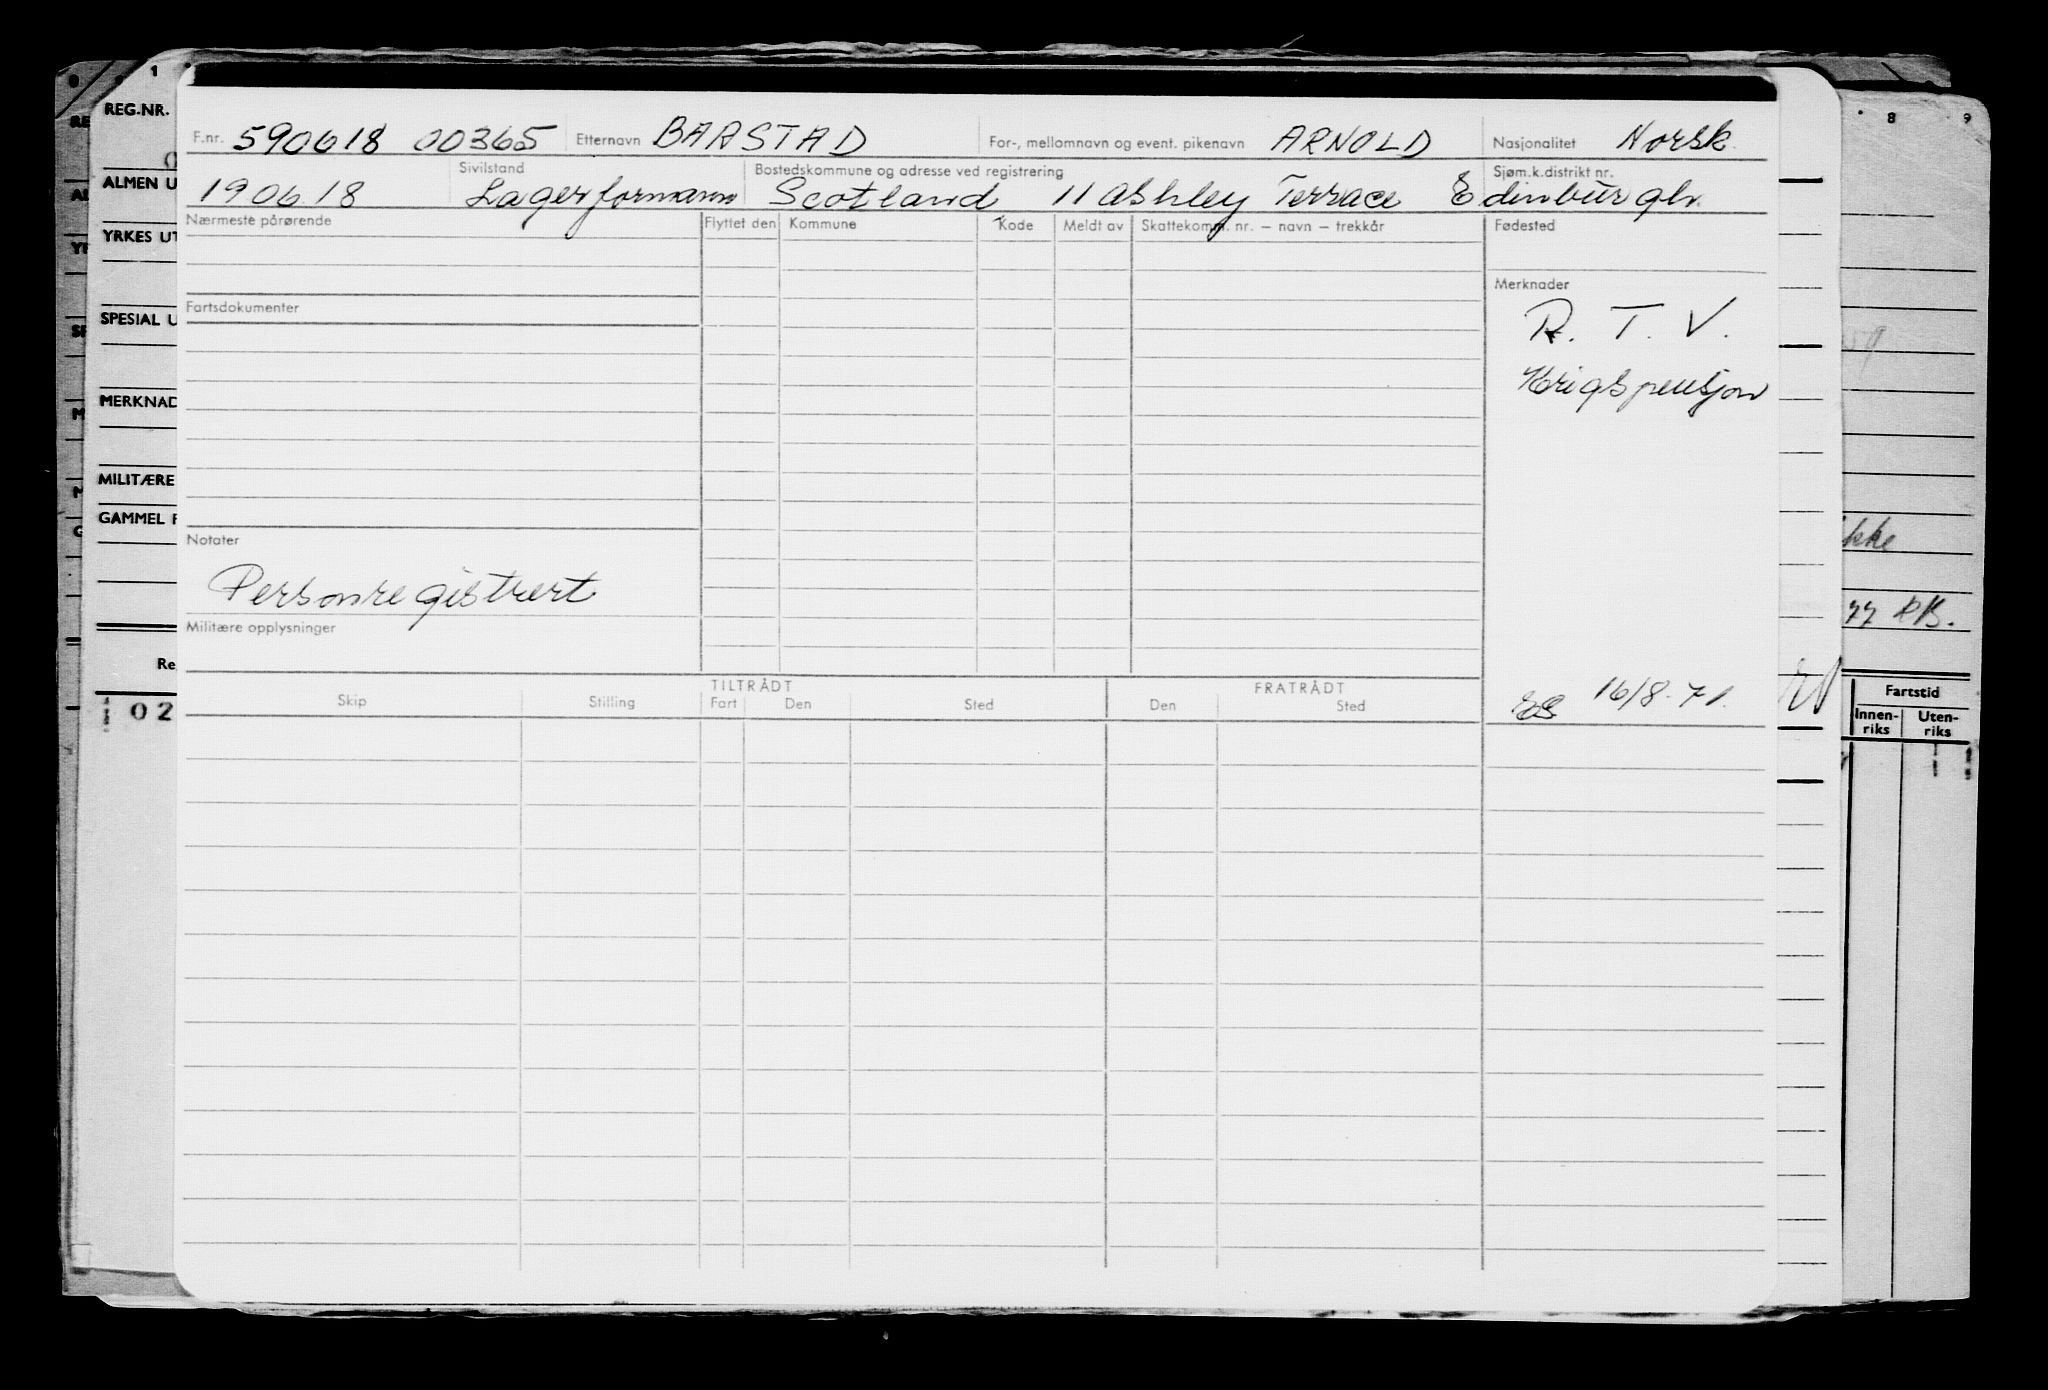 1
8 9
REG.NR.
F.nr. 590618 00365 Etternavn BAASTAD For-, mellomnavn og event. pikenavn ARNOLD Nasjonalitet Norsk.
ALMEN U
Sivilstand Bostedskommune og adresse ved registrering Sjøm.k.distrikt nr.
190618 Lagerformann Scotland 11 Ashley Terrace Edinburgh.
Nærmeste pårørende Flyttet den Kommune Kode Meldt av Skattekomm. nr. – navn – trekkår Fødested
YRKES UT
Merknader
Fartsdokumenter
SPESIAL U
R. T. V.
Krigspensjon
MERKNAD
MILITÆRE
GAMMEL F
Notater
ikke
Personregistrert
77 RB.
Militære opplysninger
Re
TILTRÅDT FRATRÅDT
Skip Stilling Fart Den Sted Den Sted
16/8-71.
02
Fartstid
Innen-riks Uten-riks